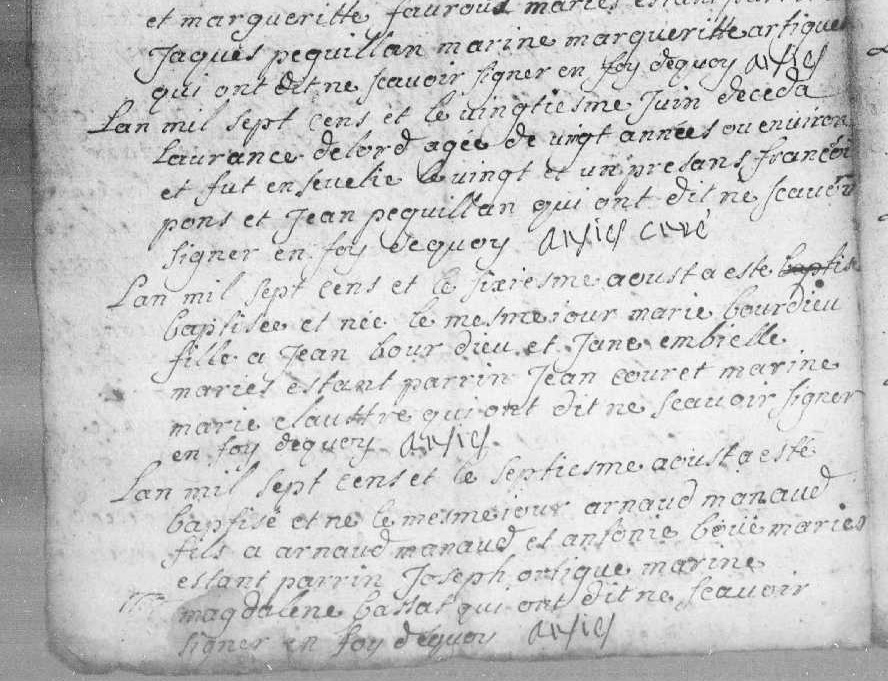 et margueritte fauroux mariés estant parrin
Jaques peguillan marine margueritte artigues
qui ont dit ne scavoir signer en foy dequoy
Lan mil sept cens et le vingtiesme Juin deceda
Laurance delord agée de vingt années ou environ
et fut ensevelie le vingt et un presans françois
pons et Jean peguillan qui ont dit ne scavoir
signer en foy dequoy curé
Lan mil sept cens et le sixiesme aoust a este baptise
baptisée et née le mesme iour marie bourdieu
fille a Jean bourdieu et Jane embielle
mariés estant parrin Jean couret marine
marie clauttre qui ont dit ne scavoir signer
en foy dequoy
Lan mil sept cens et le septiesme aoust a esté
baptisé et né le mesme iour arnaud manaud
fils a arnaud manaud et antonie boüé mariés
estant parrin Joseph ortigue marine
magdalene bassat qui ont dit ne scavoir
signer en foy dequoy